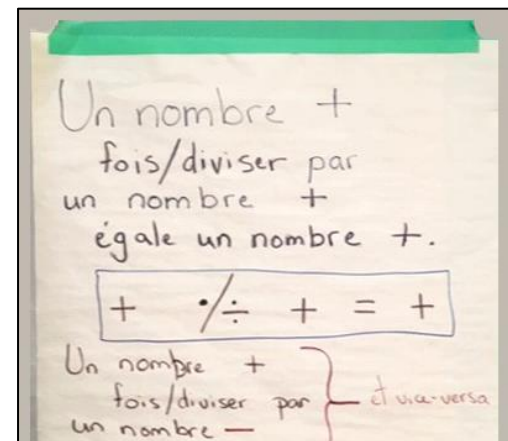 Un nombre +
fois/diviser par
un nombre +
égale un nombre +.
+ •/÷ + = +
Un nombre +
fois/diviser par
un nombre —
et vice-versa